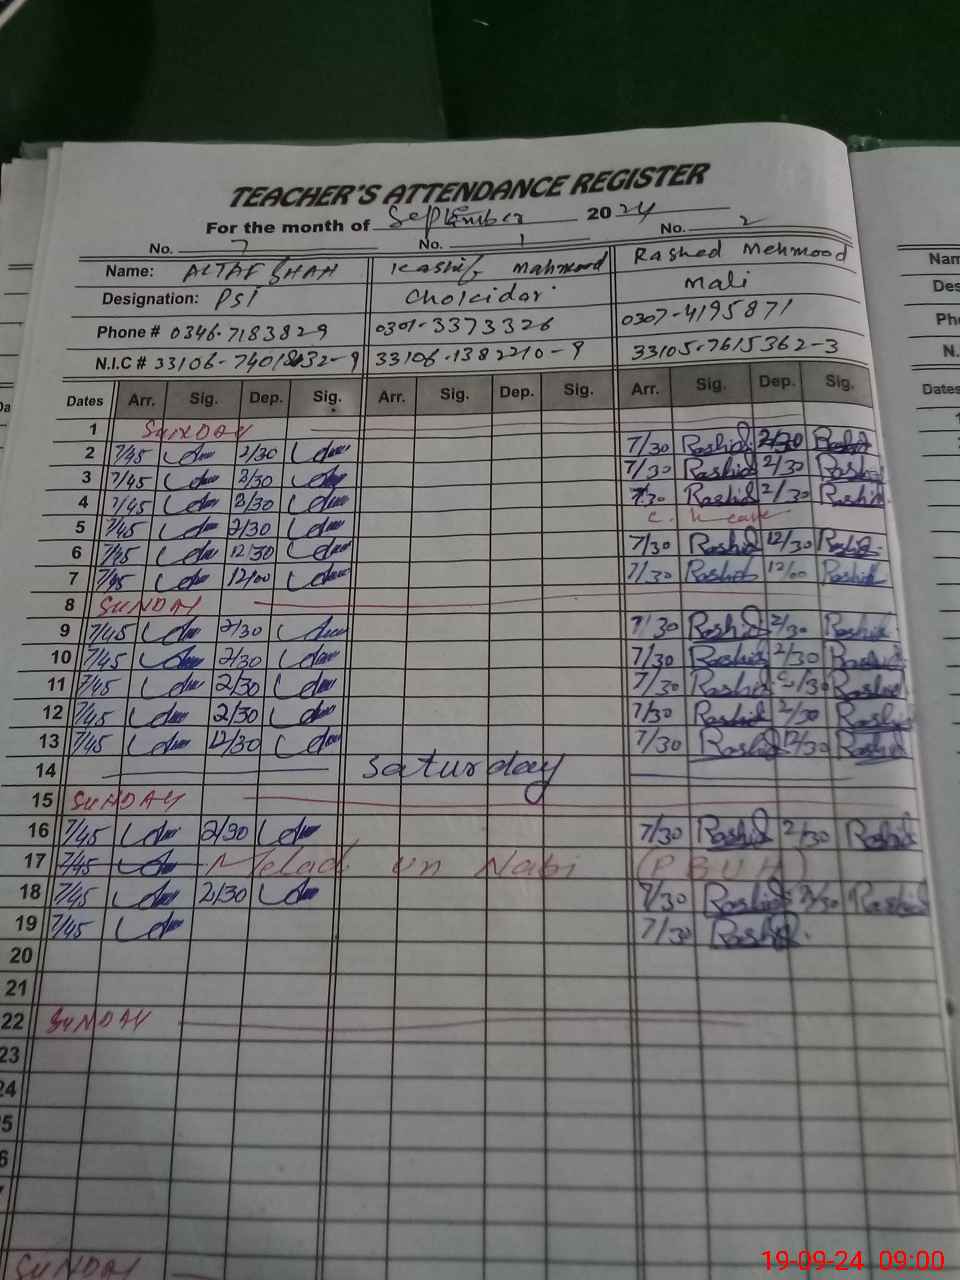 TEACHER'S ATTENDANCE REGISTER
For the month of September 2024
No. 7 No. 1 No. 2
Name: ALTAF SHAH Kashif Mahmood Rashed Mehmood
Designation: PST Chokidar Mali
Phone # 0346-7183829 0301-3373326 0307-4195871
N.I.C # 33106-1382210-9 33105-7615362-3
Dates Arr. Sig. Dep. Sig. Arr. Sig. Dep. Sig. Arr. Sig. Dep. Sig.
1 SUNDAY
2 7/45 2/30 7/30 Rashid 2/30 Rashid
3 7/45 2/30 7/30 Rashid 2/30 Rashid
4 7/45 2/30 7/30 Rashid 2/30 Rashid
5 7/45 2/30 C. Leave
6 7/45 12/30 7/30 Rashid 12/30 Rashid
7 7/45 12/00 7/30 Rashid 12/00 Rashid
8 SUNDAY
9 7/45 2/30 7/30 Rashid 2/30 Rashid
10 7/45 2/30 7/30 Rashid 2/30 Rashid
11 7/45 2/30 7/30 Rashid 2/30 Rashid
12 7/45 2/30 7/30 Rashid 2/30 Rashid
13 7/45 12/30 7/30 Rashid 12/30 Rashid
14 Saturday
15 SUNDAY
16 7/45 2/30 7/30 Rashid 2/30 Rashid
17 7/45 Melad un Nabi (PBUH)
18 7/45 2/30 7/30 Rashid 2/30 Rashid
19 7/45 7/30 Rashid
20
21
22 SUNDAY
23
24
5
6
SUNDAY
Nam
Des
Ph
N.
Dates
19-09-24 09:00